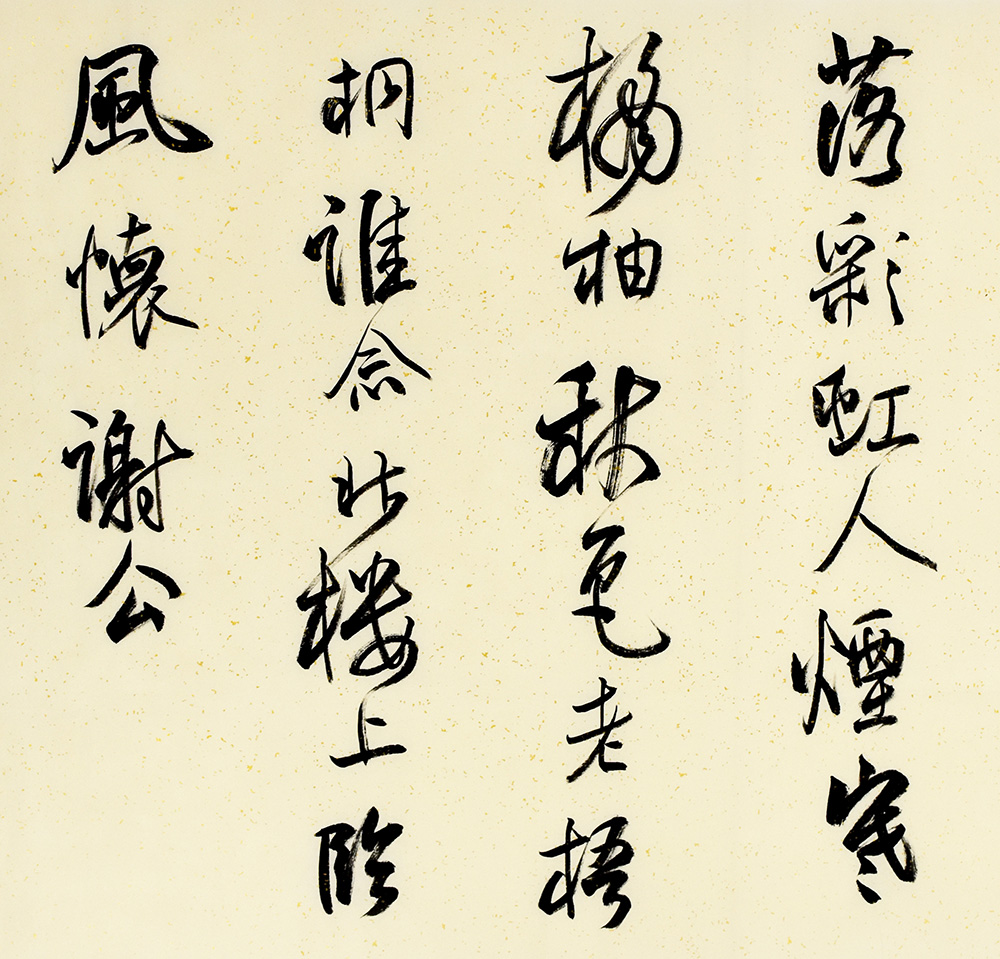 落彩虹人煙寒
橘柚秋色老梧
桐誰念北樓上臨
風懷謝公